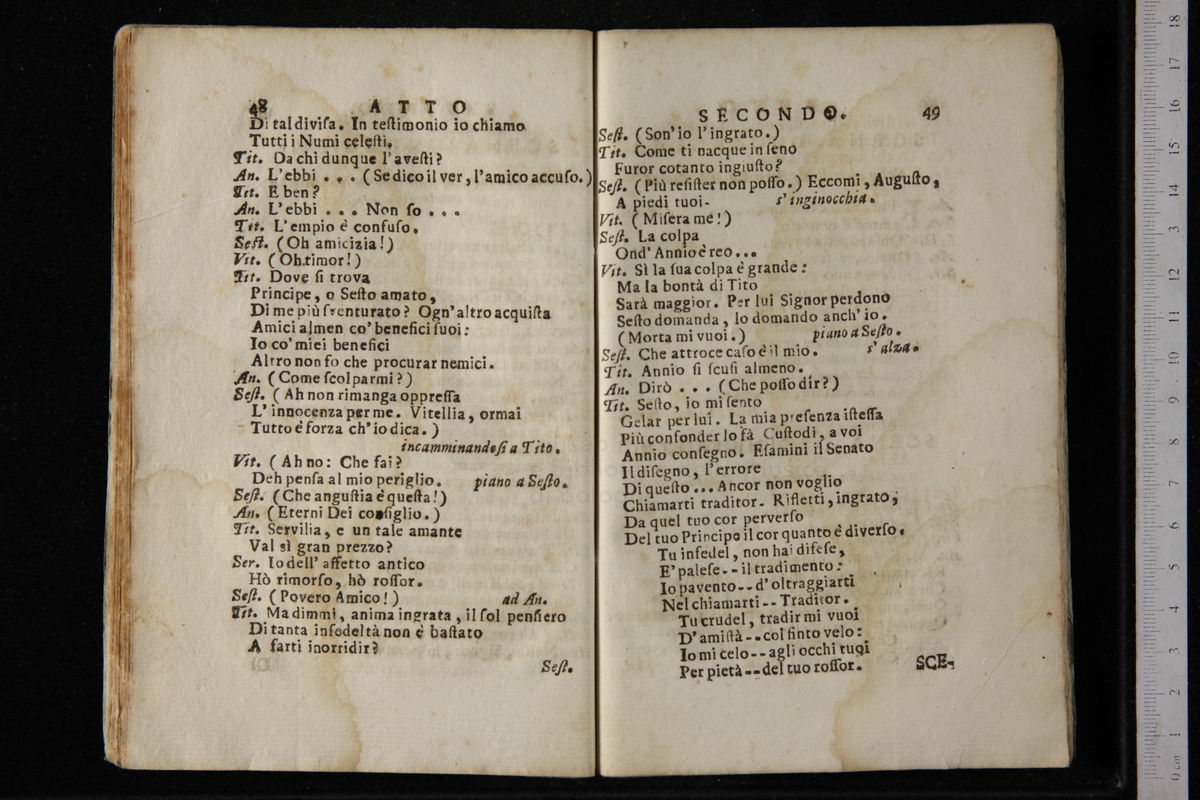 48 ATTO
Di tal divisa. In testimonio io chiamo
Tutti i Numi celesti.
Tit. Da chi dunque l'avesti?
An. L'ebbi . . . (Se dico il ver, l'amico accuso.)
Tit. E ben?
An. L'ebbi . . . Non so . . .
Tit. L'empio è confuso.
Sest. (Oh amicizia!)
Vit. (Oh timor!)
Tit. Dove si trova
Principe, o Sesto amato,
Di me più sventurato? Ogn'altro acquista
Amici almen co' benefici suoi:
Io co' miei benefici
Altro non fo che procurar nemici.
An. (Come scolparmi?)
Sest. (Ah non rimanga oppressa
L'innocenza per me. Vitellia, ormai
Tutto è forza ch'io dica.)
incamminandosi a Tito.
Vit. (Ah no: Che fai?
Deh pensa al mio periglio. piano a Sesto.
Sest. (Che angustia è questa!)
An. (Eterni Dei consiglio.)
Tit. Servilia, e un tale amante
Val sì gran prezzo?
Ser. Io dell' affetto antico
Hò rimorso, hò rossor.
Sest. (Povero Amico!) ad An.
Tit. Ma dimmi, anima ingrata, il sol pensiero
Di tanta infedeltà non è bastato
A farti inorridir?
Sest.
SECONDO. 49
Sest. (Son' io l'ingrato.)
Tit. Come ti nacque in seno
Furor cotanto ingiusto?
Sest. (Più resister non posso.) Eccomi, Augusto,
A piedi tuoi- s' inginocchia.
Vit. (Misera me!)
Sest. La colpa
Ond' Annio è reo...
Vit. Sì la sua colpa è grande:
Ma la bontà di Tito
Sarà maggior. Per lui Signor perdono
Sesto domanda, lo domando anch' io.
(Morta mi vuoi.) piano a Sesto.
Sest. Che attroce caso è il mio. s' alza.
Tit. Annio si scusi almeno.
An. Dirò . . . (Che posso dir?)
Tit. Sesto, io mi sento
Gelar per lui. La mia presenza istessa
Più confonder lo fà Custodi, a voi
Annio consegno. Esamini il Senato
Il disegno, l'errore
Di questo ... Ancor non voglio
Chiamarti traditor. Rifletti, ingrato,
Da quel tuo cor perverso
Del tuo Principe il cor quanto è diverso.
Tu infedel, non hai difese,
E' palese -- il tradimento:
Io pavento -- d' oltraggiarti
Nel chiamarti -- Traditor.
Tu crudel, tradir mi vuoi
D' amistà -- col finto velo:
Io mi celo -- agli occhi tuoi
Per pietà -- del tuo rossor.
SCE-